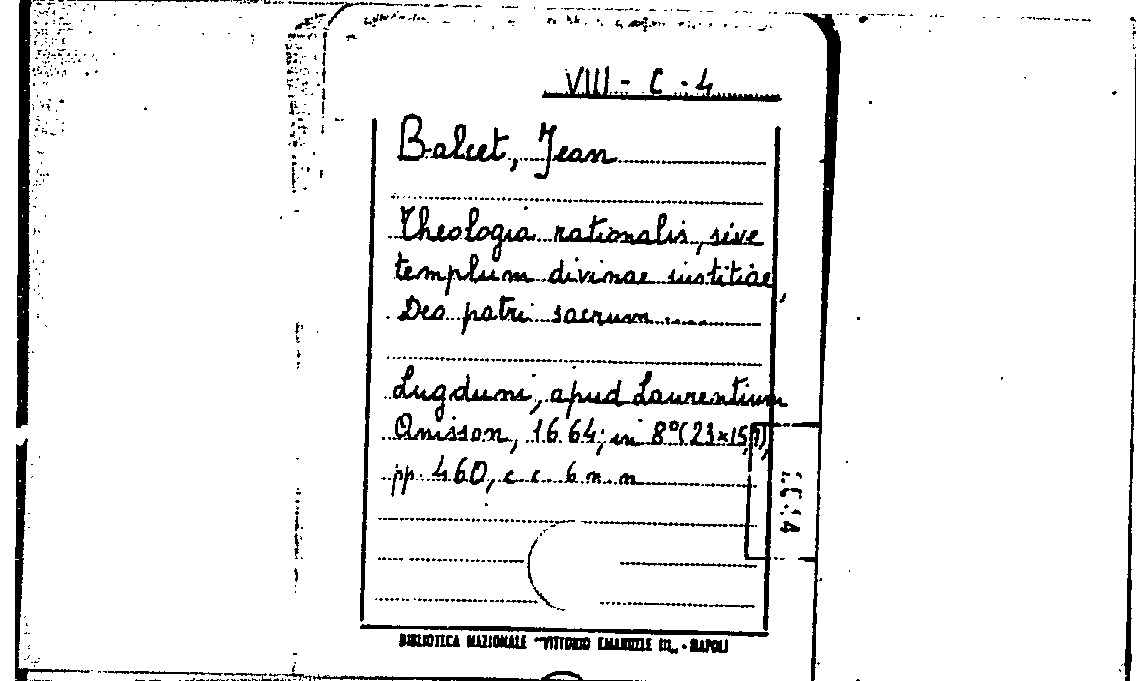 VIII - C - 4
Balcet, Jean
Theologia rationalis, sive
templum divinae iustitiae,
Deo patri sacrum.....
Lugduni, apud Laurentium
Anisson, 1664; in 8º (23x15,
pp. 460, c c. 6 n. n
BIBLIOTECA NAZIONALE "VITTORIO EMANUELE III" - NAPOLI